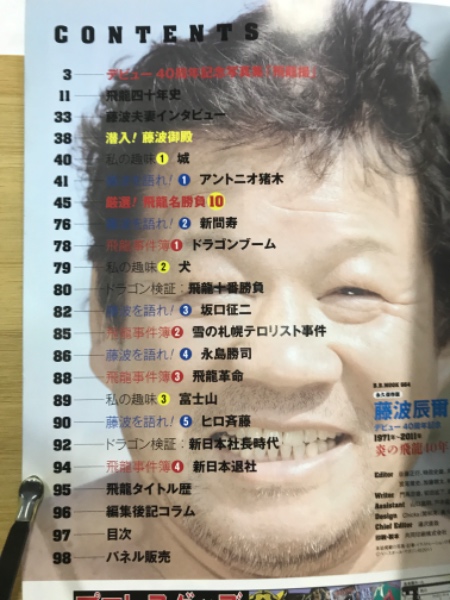 CONTENTS
3 デビュー40周年記念写真集「飛龍伝」
11 飛龍四十年史
33 藤波夫妻インタビュー
38 潜入!藤波御殿
40 私の趣味① 城
41 藤波を語れ!① アントニオ猪木
45 厳選!飛龍名勝負10
76 藤波を語れ!② 新間寿
78 飛龍事件簿① ドラゴンブーム
79 私の趣味② 犬
80 ドラゴン検証:飛龍十番勝負
82 藤波を語れ!③ 坂口征二
85 飛龍事件簿② 雪の札幌テロリスト事件
86 藤波を語れ!④ 永島勝司
88 飛龍事件簿③ 飛龍革命
89 私の趣味③ 富士山
90 藤波を語れ!⑤ ヒロ斉藤
92 ドラゴン検証:新日本社長時代
94 飛龍事件簿④ 新日本退社
95 飛龍タイトル歴
96 編集後記コラム
97 目次
98 パネル販売
B.B.MOOK
藤波辰爾
デビュー40周年記念
1971年~2011年
炎の飛龍40年
Editor
Writer
Assistant
Design
Chief Editor